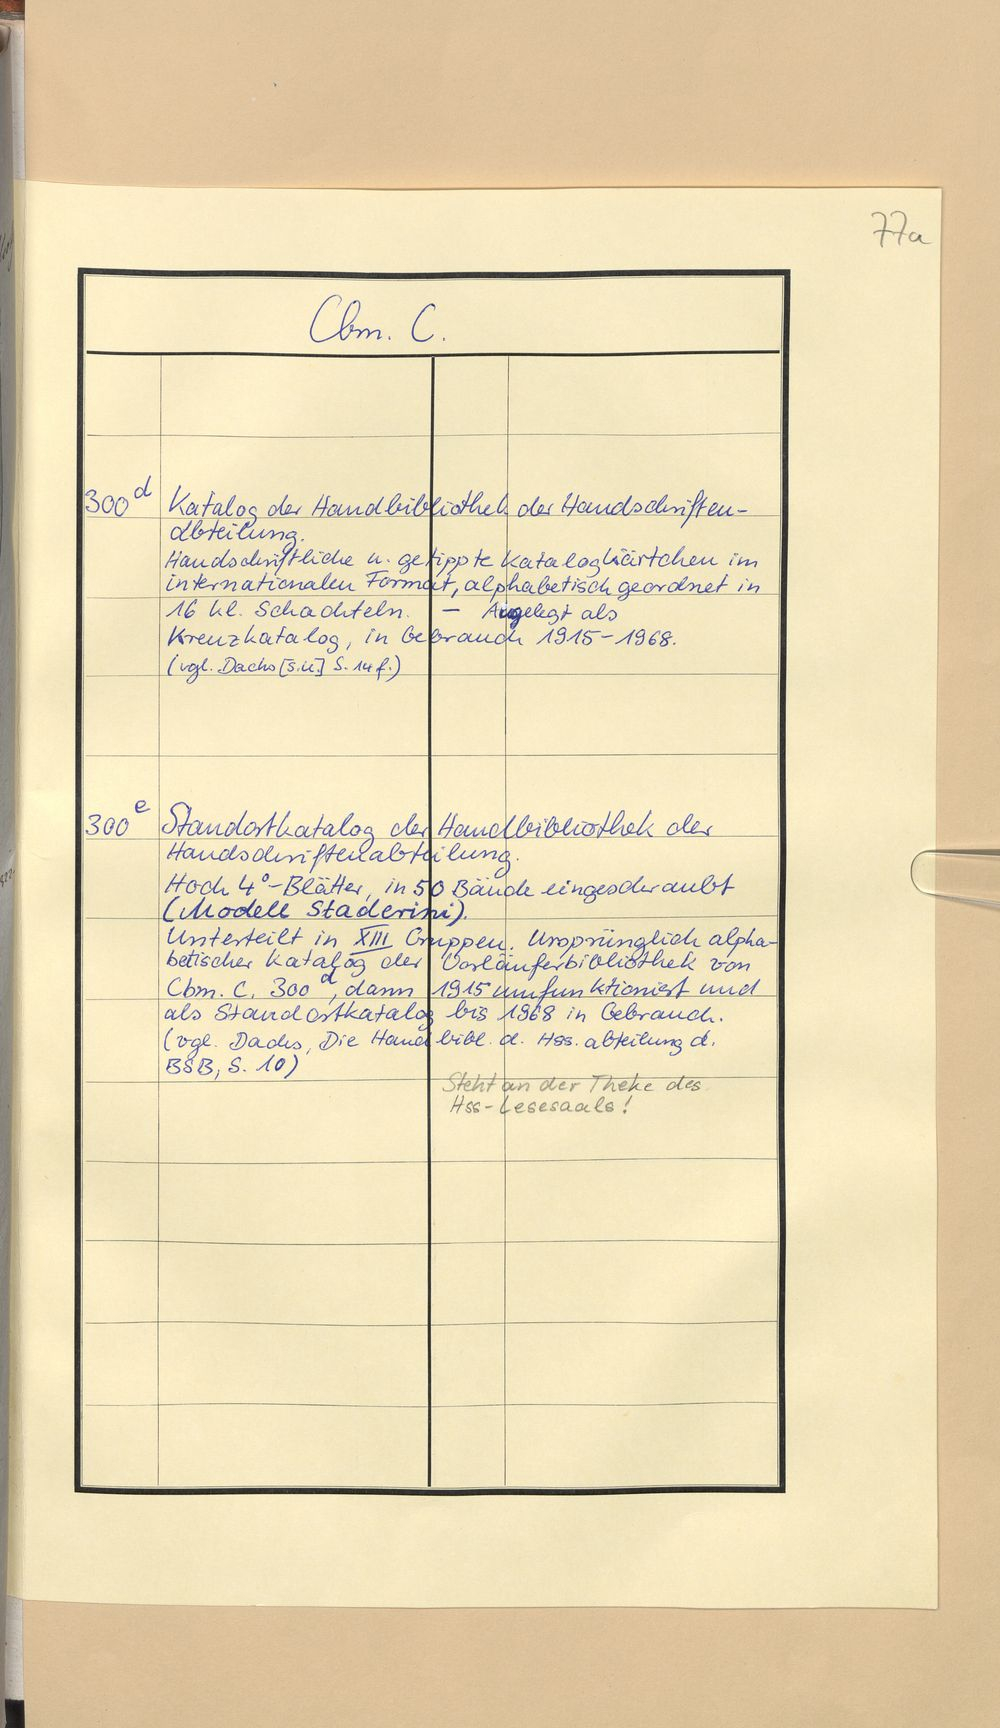 77a
Cbm. C.
300d Katalog der Handbibliothek der Handschriften-
abteilung.
Handschriftliche u. getippte Katalogkärtchen im
internationalen Format, alphabetisch geordnet in
16 kl. Schachteln. — Angelegt als
Kreuzkatalog, in Gebrauch 1915-1968.
(vgl. Dachs [s.u.] S. 14f.)
300e Standortkatalog der Handbibliothek der
Handschriftenabteilung.
Hoch 4°-Blätter, in 50 Bände eingeschraubt
(Modell Staderini).
Unterteilt in XIII Gruppen. Ursprünglich alpha-
betischer Katalog der Vorläuferbibliothek von
Cbm. C. 300d, dann 1915 umfunktioniert und
als Standortkatalog bis 1968 in Gebrauch.
(vgl. Dachs, Die Handbibl. d. Hss.abteilung d.
BSB, S. 10)
Steht an der Theke des
Hss-Lesesaals!